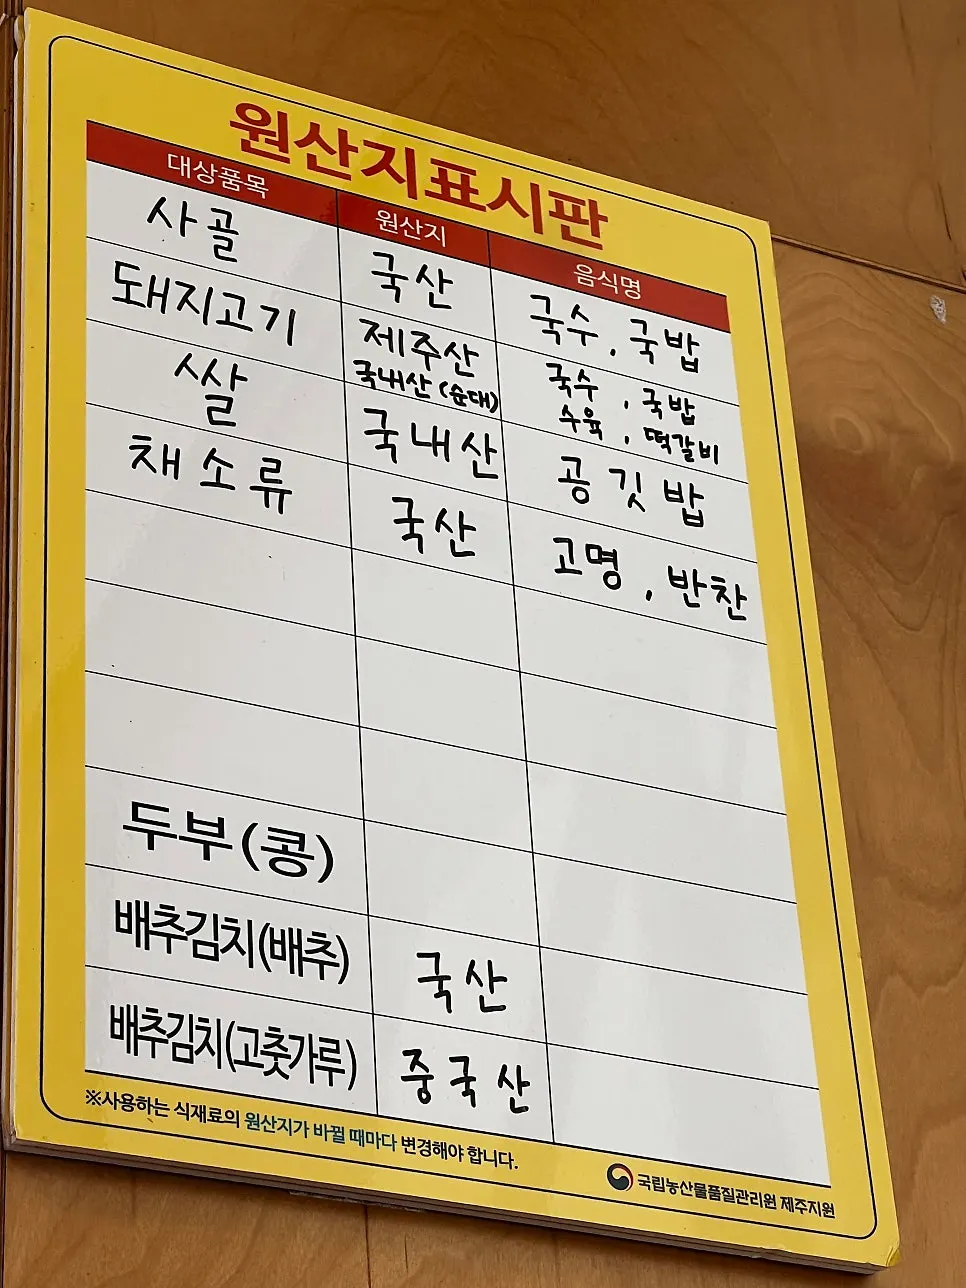 원산지표시판
대상품목 원산지 음식명
사골 국산 국수, 국밥
돼지고기 제주산 국수, 국밥
국내산 (순대) 수육, 떡갈비
쌀 국내산 공깃밥
채소류 국산 고명, 반찬
두부(콩)
배추김치(배추) 국산
배추김치(고춧가루) 중국산
※사용하는 식재료의 원산지가 바뀔 때마다 변경해야 합니다.
국립농산물품질관리원 제주지원